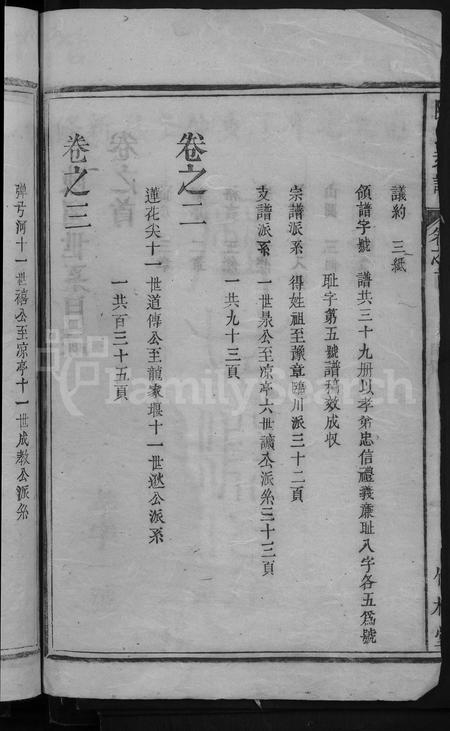 議約 三紙
領譜字號 譜共三十九册以孝弟忠信禮義廉耻八字各五爲號
耻字第五號譜稿效成収
宗譜派系 得姓祖至豫章臨川派三十二頁
支譜派系 一世景公至凉亭六世讀公派系三十三頁
一共九十三頁
卷之二
蓮花尖十一世道傳公至龍家堰十一世公派系
一共百三十五頁
卷之三
彈子河十一世禧公至凉亭十一世成教公派系
FamilySearch